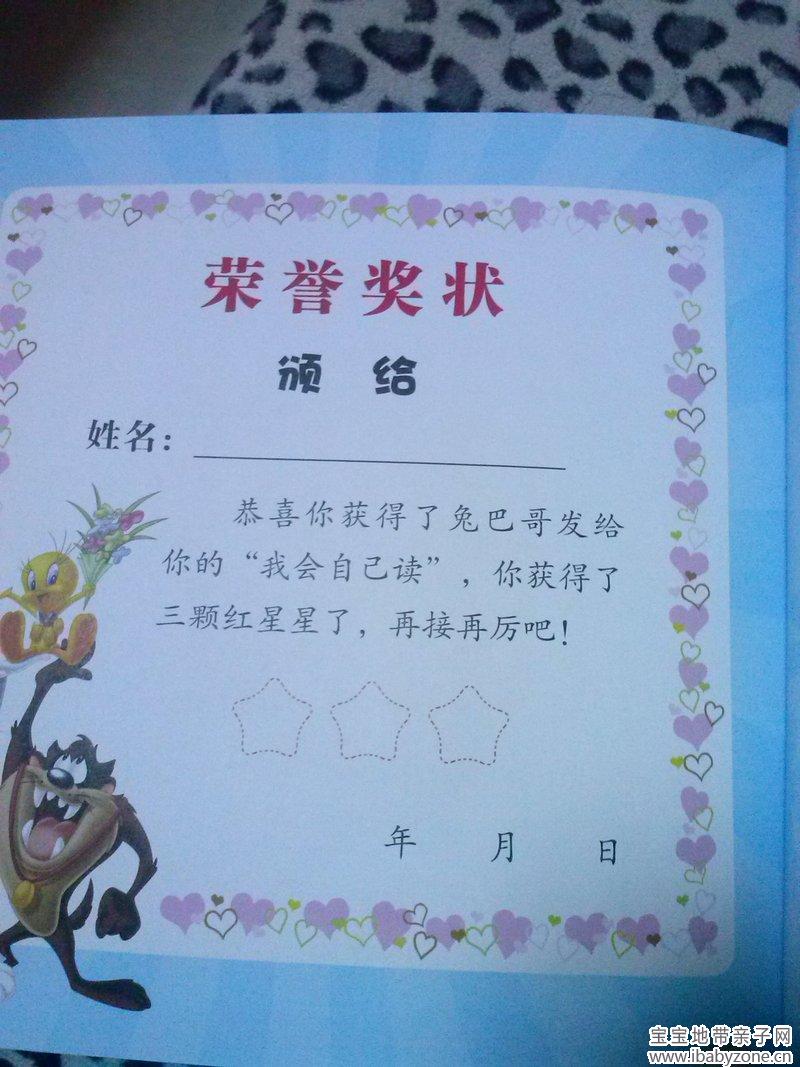 荣誉奖状
颁 给
姓名：
恭喜你获得了兔巴哥发给
你的“我会自己读”，你获得了
三颗红星星了，再接再厉吧！
年 月 日
宝宝地带亲子网
www.ibabyzone.cn